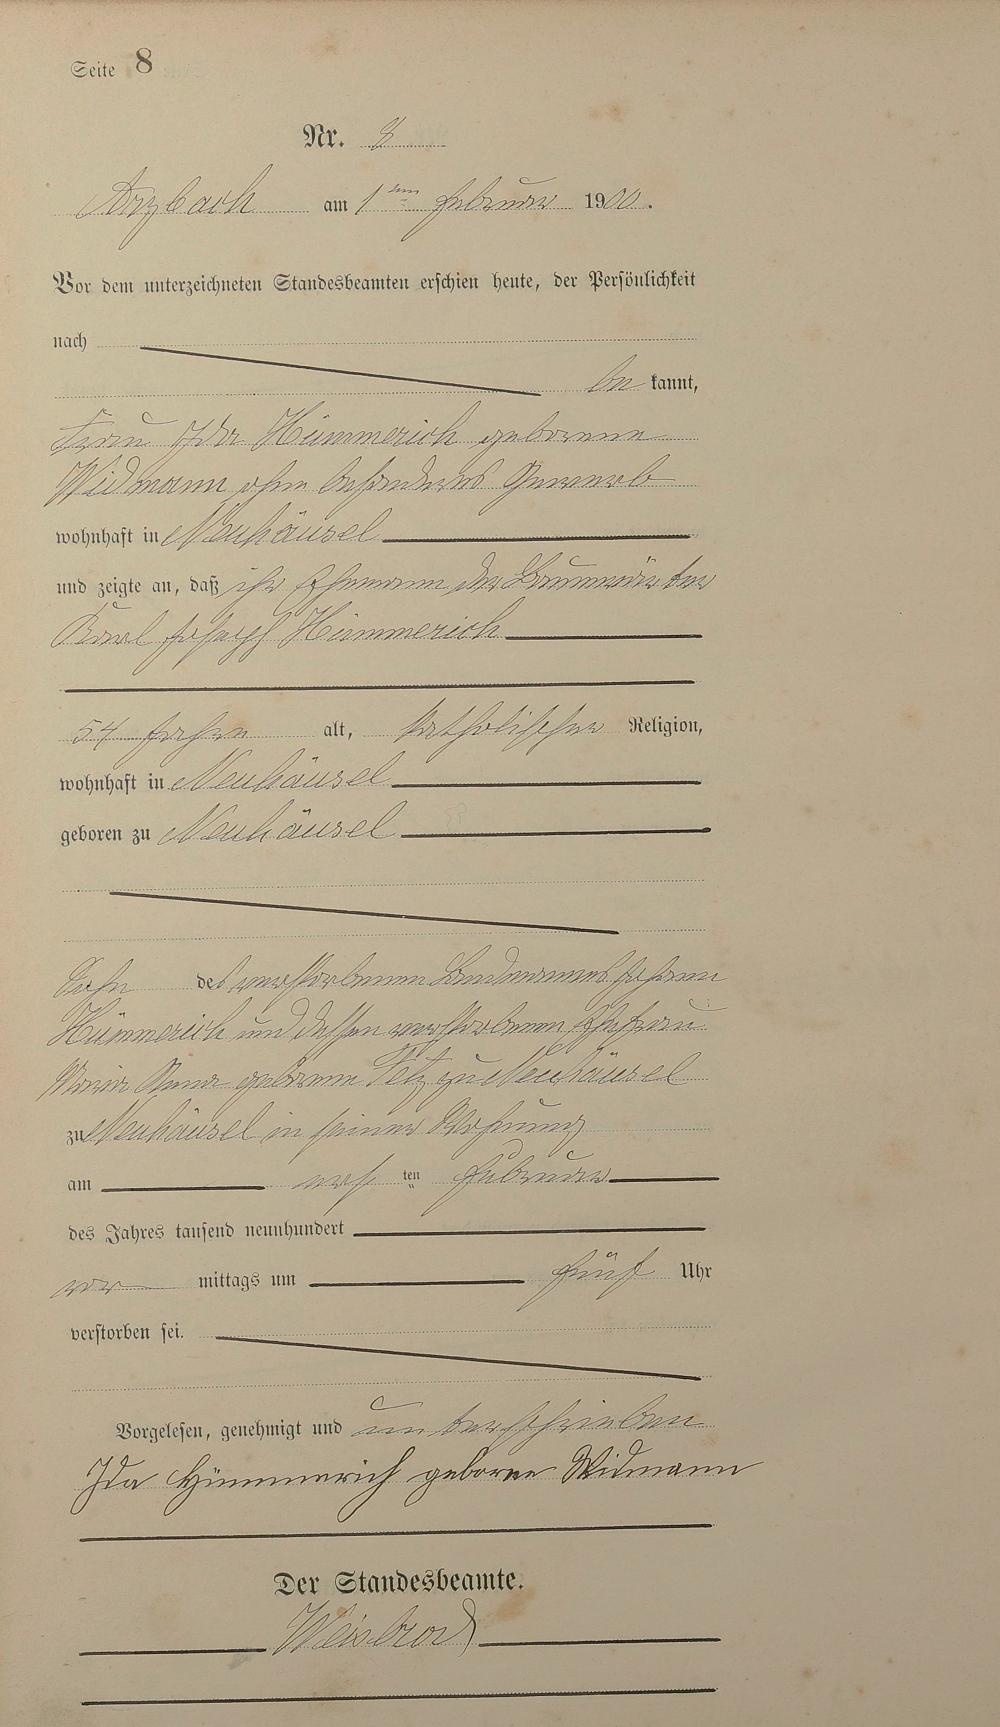 Seite 8
Nr. 8
Arzbach am 1ten Februar 1900.
Vor dem unterzeichneten Standesbeamten erschien heute, der Persönlichkeit
nach
be kannt,
Frau Ida Hümmerich geborene
Widmann ohne besonderes Gewerb
wohnhaft in Neuhäusel
und zeigte an, daß ihr Ehemann der
Karl Joseph Hümmerich
54 Jahre alt, katholischer Religion,
wohnhaft in Neuhäusel
geboren zu Neuhäusel
Sohn des verstorbenen Landmannes Johann
Hümmerich und dessen verstorbenen Ehefrau
Maria Anna geborene zu Neuhäusel
zu Neuhäusel in seiner Wohnung
am ersten Februar
des Jahres tausend neunhundert
vor mittags um fünf Uhr
verstorben sei.
Vorgelesen, genehmigt und unterschrieben
Ida Hümmerich geborne Widmann
Der Standesbeamte.
Weisbrod